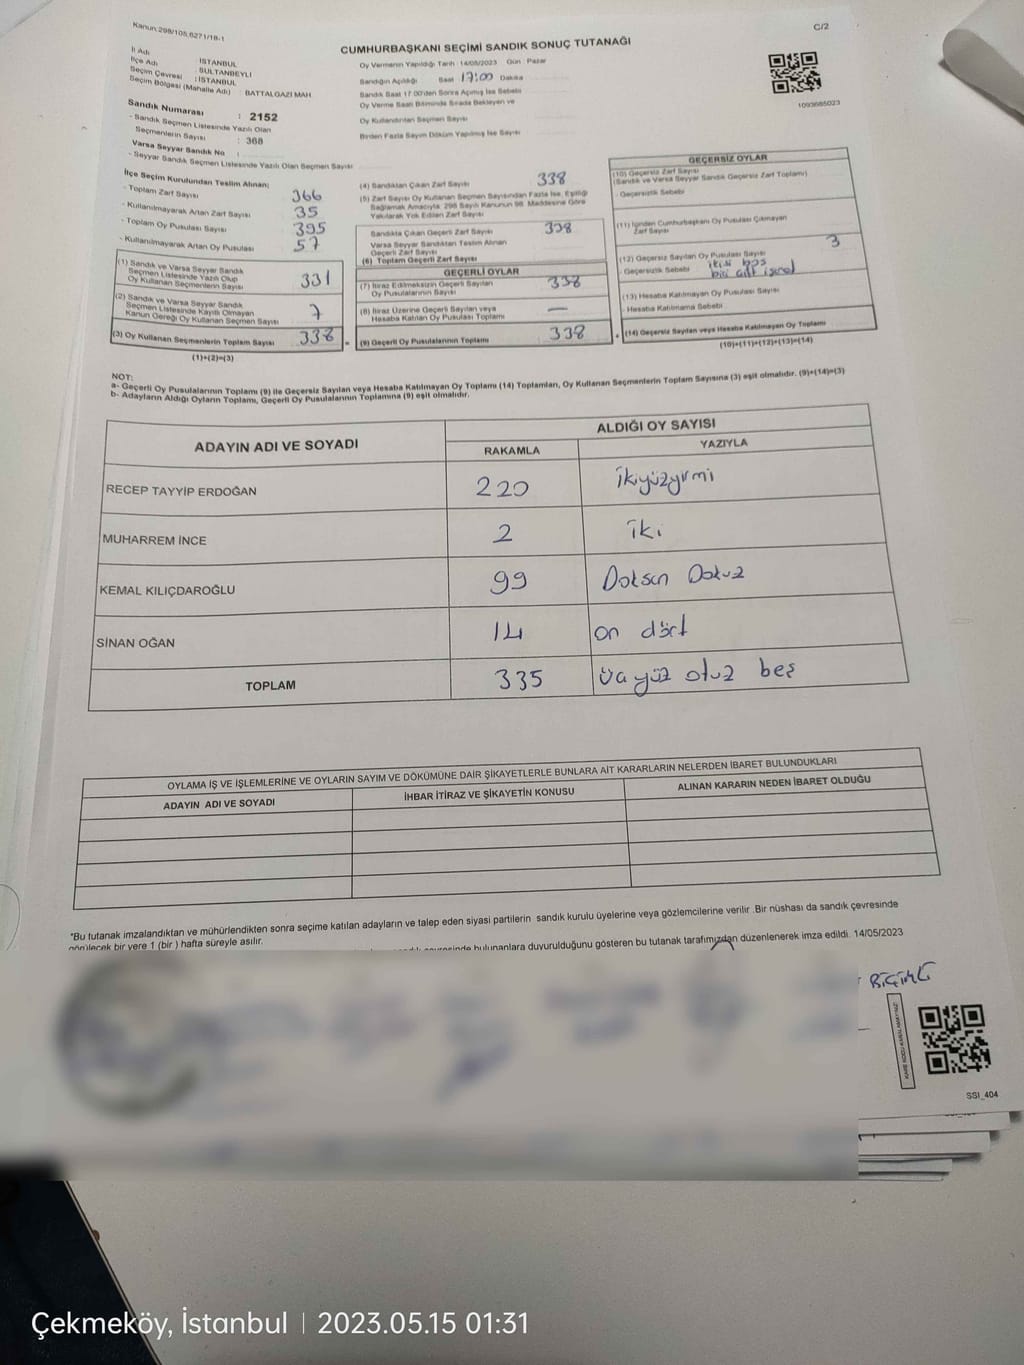 Kanun:298/105,6271/18-1
C/2
CUMHURBAŞKANI SEÇİMİ SANDIK SONUÇ TUTANAĞI
İl Adı : İSTANBUL
İlçe Adı : SULTANBEYLİ
Seçim Çevresi : İSTANBUL
Seçim Bölgesi (Mahalle Adı) : BATTALGAZİ MAH.
Sandık Numarası : 2152
- Sandık Seçmen Listesinde Yazılı Olan
Seçmenlerin Sayısı : 368
Varsa Seyyar Sandık No :
- Seyyar Sandık Seçmen Listesinde Yazılı Olan Seçmen Sayısı
Oy Vermenin Yapıldığı Tarih :14/05/2023 Gün Pazar
Sandığın Açıldığı Saat 17:00 Dakika
Sandık Saat 17.00'den Sonra Açılmış İse Sebebi
Oy Verme Saati Bitiminde Sırada Bekleyen ve
Oy Kullandırılan Seçmen Sayısı
Birden Fazla Sayım Döküm Yapılmış İse Sayısı
1093685023
İlçe Seçim Kurulundan Teslim Alınan;
- Toplam Zarf Sayısı 366
- Kullanılmayarak Artan Zarf Sayısı 35
- Toplam Oy Pusulası Sayısı 395
- Kullanılmayarak Artan Oy Pusulası 57
(1) Sandık ve Varsa Seyyar Sandık
Seçmen Listesinde Yazılı Olup
Oy Kullanan Seçmenlerin Sayısı 331
(2) Sandık ve Varsa Seyyar Sandık
Seçmen Listesinde Kayıtlı Olmayan
Kanun Gereği Oy Kullanan Seçmen Sayısı 7
(3) Oy Kullanan Seçmenlerin Toplam Sayısı 338
(1)+(2)=(3)
(4) Sandıktan Çıkan Zarf Sayısı 338
(5) Zarf Sayısı Oy Kullanan Seçmen Sayısından Fazla İse, Eşitliği
Sağlamak Amacıyla, 298 Sayılı Kanunun 98. Maddesine Göre
Yakılarak Yok Edilen Zarf Sayısı
Sandıkta Çıkan Geçerli Zarf Sayısı 338
Varsa Seyyar Sandıktan Teslim Alınan
Geçerli Zarf Sayısı
(6) Toplam Geçerli Zarf Sayısı
GEÇERLİ OYLAR
(7) İtiraz Edilmeksizin Geçerli Sayılan
Oy Pusulalarının Sayısı 338
(8) İtiraz Üzerine Geçerli Sayılan veya
Hesaba Katılan Oy Pusulası Toplamı —
(9) Geçerli Oy Pusulalarının Toplamı 338
GEÇERSİZ OYLAR
(10) Geçersiz Zarf Sayısı
(Sandık ve Varsa Seyyar Sandık Geçersiz Zarf Toplamı)
- Geçersizlik Sebebi
(11) İçinden Cumhurbaşkanı Oy Pusulası Çıkmayan
Zarf Sayısı
(12) Geçersiz Sayılan Oy Pusulası Sayısı 3
- Geçersizlik Sebebi ikisi boş
biri çift
(13) Hesaba Katılmayan Oy Pusulası Sayısı
- Hesaba Katılmama Sebebi
(14) Geçersiz Sayılan veya Hesaba Katılmayan Oy Toplamı
(10)+(11)+(12)+(13)=(14)
NOT:
a- Geçerli Oy Pusulalarının Toplamı (9) ile Geçersiz Sayılan veya Hesaba Katılmayan Oy Toplamı (14) Toplamları, Oy Kullanan Seçmenlerin Toplam Sayısına (3) eşit olmalıdır. (9)+(14)=(3)
b- Adayların Aldığı Oyların Toplamı, Geçerli Oy Pusulalarının Toplamına (9) eşit olmalıdır.
ADAYIN ADI VE SOYADI ALDIĞI OY SAYISI
RAKAMLA YAZIYLA
RECEP TAYYİP ERDOĞAN 220 ikiyüzyirmi
MUHARREM İNCE 2 iki
KEMAL KILIÇDAROĞLU 99 Doksan Dokuz
SİNAN OĞAN 14 on dört
TOPLAM 335 Üçyüz otuz beş
OYLAMA İŞ VE İŞLEMLERİNE VE OYLARIN SAYIM VE DÖKÜMÜNE DAİR ŞİKAYETLERLE BUNLARA AİT KARARLARIN NELERDEN İBARET BULUNDUKLARI
ADAYIN ADI VE SOYADI İHBAR İTİRAZ VE ŞİKAYETİN KONUSU ALINAN KARARIN NEDEN İBARET OLDUĞU
*Bu tutanak imzalandıktan ve mühürlendikten sonra seçime katılan adayların ve talep eden siyasi partilerin sandık kurulu üyelerine veya gözlemcilerine verilir .Bir nüshası da sandık çevresinde
görülecek bir yere 1 (bir ) hafta süreyle asılır.
bulunanlara duyurulduğunu gösteren bu tutanak tarafımızdan düzenlenerek imza edildi. 14/05/2023
SSI_404
Çekmeköy, İstanbul | 2023.05.15 01:31